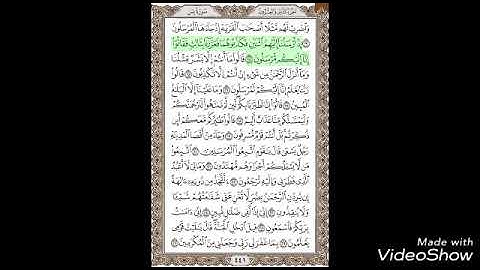 سورة يس
وَاضْرِبْ لَهُم مَّثَلًا أَصْحَٰبَ الْقَرْيَةِ إِذْ جَآءَهَا الْمُرْسَلُونَ
١٣ إِذْ أَرْسَلْنَآ إِلَيْهِمُ اثْنَيْنِ فَكَذَّبُوهُمَا فَعَزَّزْنَا بِثَالِثٍ فَقَالُوٓا
إِنَّآ إِلَيْكُم مُّرْسَلُونَ ١٤ قَالُوا مَآ أَنتُمْ إِلَّا بَشَرٌ مِّثْلُنَا
وَمَآ أَنزَلَ الرَّحْمَٰنُ مِن شَىْءٍ إِنْ أَنتُمْ إِلَّا تَكْذِبُونَ ١٥ قَالُوا
رَبُّنَا يَعْلَمُ إِنَّآ إِلَيْكُمْ لَمُرْسَلُونَ ١٦ وَمَا عَلَيْنَآ إِلَّا الْبَلَٰغُ
الْمُبِينُ ١٧ قَالُوٓا إِنَّا تَطَيَّرْنَا بِكُمْ لَئِن لَّمْ تَنتَهُوا لَنَرْجُمَنَّكُمْ
وَلَيَمَسَّنَّكُم مِّنَّا عَذَابٌ أَلِيمٌ ١٨ قَالُوا طَٰٓئِرُكُم مَّعَكُمْ أَئِن
ذُكِّرْتُم بَلْ أَنتُمْ قَوْمٌ مُّسْرِفُونَ ١٩ وَجَآءَ مِنْ أَقْصَا الْمَدِينَةِ
رَجُلٌ يَسْعَىٰ قَالَ يَٰقَوْمِ اتَّبِعُوا الْمُرْسَلِينَ ٢٠ اتَّبِعُوا
مَن لَّا يَسْـَٔلُكُمْ أَجْرًا وَهُم مُّهْتَدُونَ ٢١ وَمَا لِىَ لَآ أَعْبُدُ
الَّذِى فَطَرَنِى وَإِلَيْهِ تُرْجَعُونَ ٢٢ ءَأَتَّخِذُ مِن دُونِهِۦٓ ءَالِهَةً
إِن يُرِدْنِ الرَّحْمَٰنُ بِضُرٍّ لَّا تُغْنِ عَنِّى شَفَٰعَتُهُمْ شَيْـًٔا
وَلَا يُنقِذُونِ ٢٣ إِنِّىٓ إِذًا لَّفِى ضَلَٰلٍ مُّبِينٍ ٢٤ إِنِّىٓ ءَامَنتُ
بِرَبِّكُمْ فَاسْمَعُونِ ٢٥ قِيلَ ادْخُلِ الْجَنَّةَ قَالَ يَٰلَيْتَ قَوْمِى
يَعْلَمُونَ ٢٦ بِمَا غَفَرَ لِى رَبِّى وَجَعَلَنِى مِنَ الْمُكْرَمِينَ ٢٧
٤٤١
Made with
VideoShow